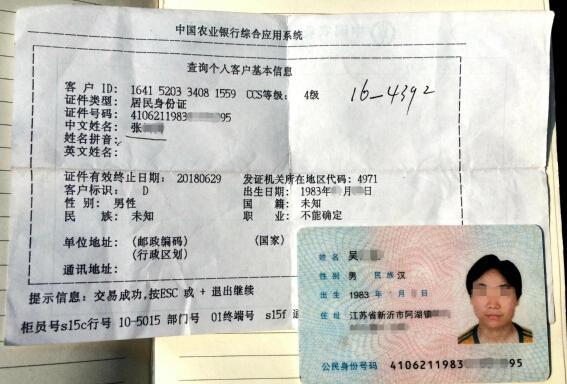 中国农业银行综合应用系统
查询个人客户基本信息
客户 ID: 1641 5203 3408 1559 CCS等级: 4级
16-4392
证件类型: 居民身份证
证件号码: 4106211983 95
中文姓名: 张
姓名拼音:
英文姓名:
证件有效终止日期: 20180629 发证机关所在地区代码: 4971
客户标识: D 出生日期: 1983 年 月 日
性 别: 男性 国 籍: 未知
民 族: 未知 职 业: 不能确定
单位地址: (邮政编码) (国家)
(行政区划)
通讯地址:
提示信息: 交易成功,按ESC 或 + 退出继续
柜员号s15c行号 10-5015 部门号 01终端号 s15f
姓名 吴
性别 男 民族 汉
出生 1983 年 月 日
住址 江苏省新沂市阿湖镇
公民身份号码 4106211983 95